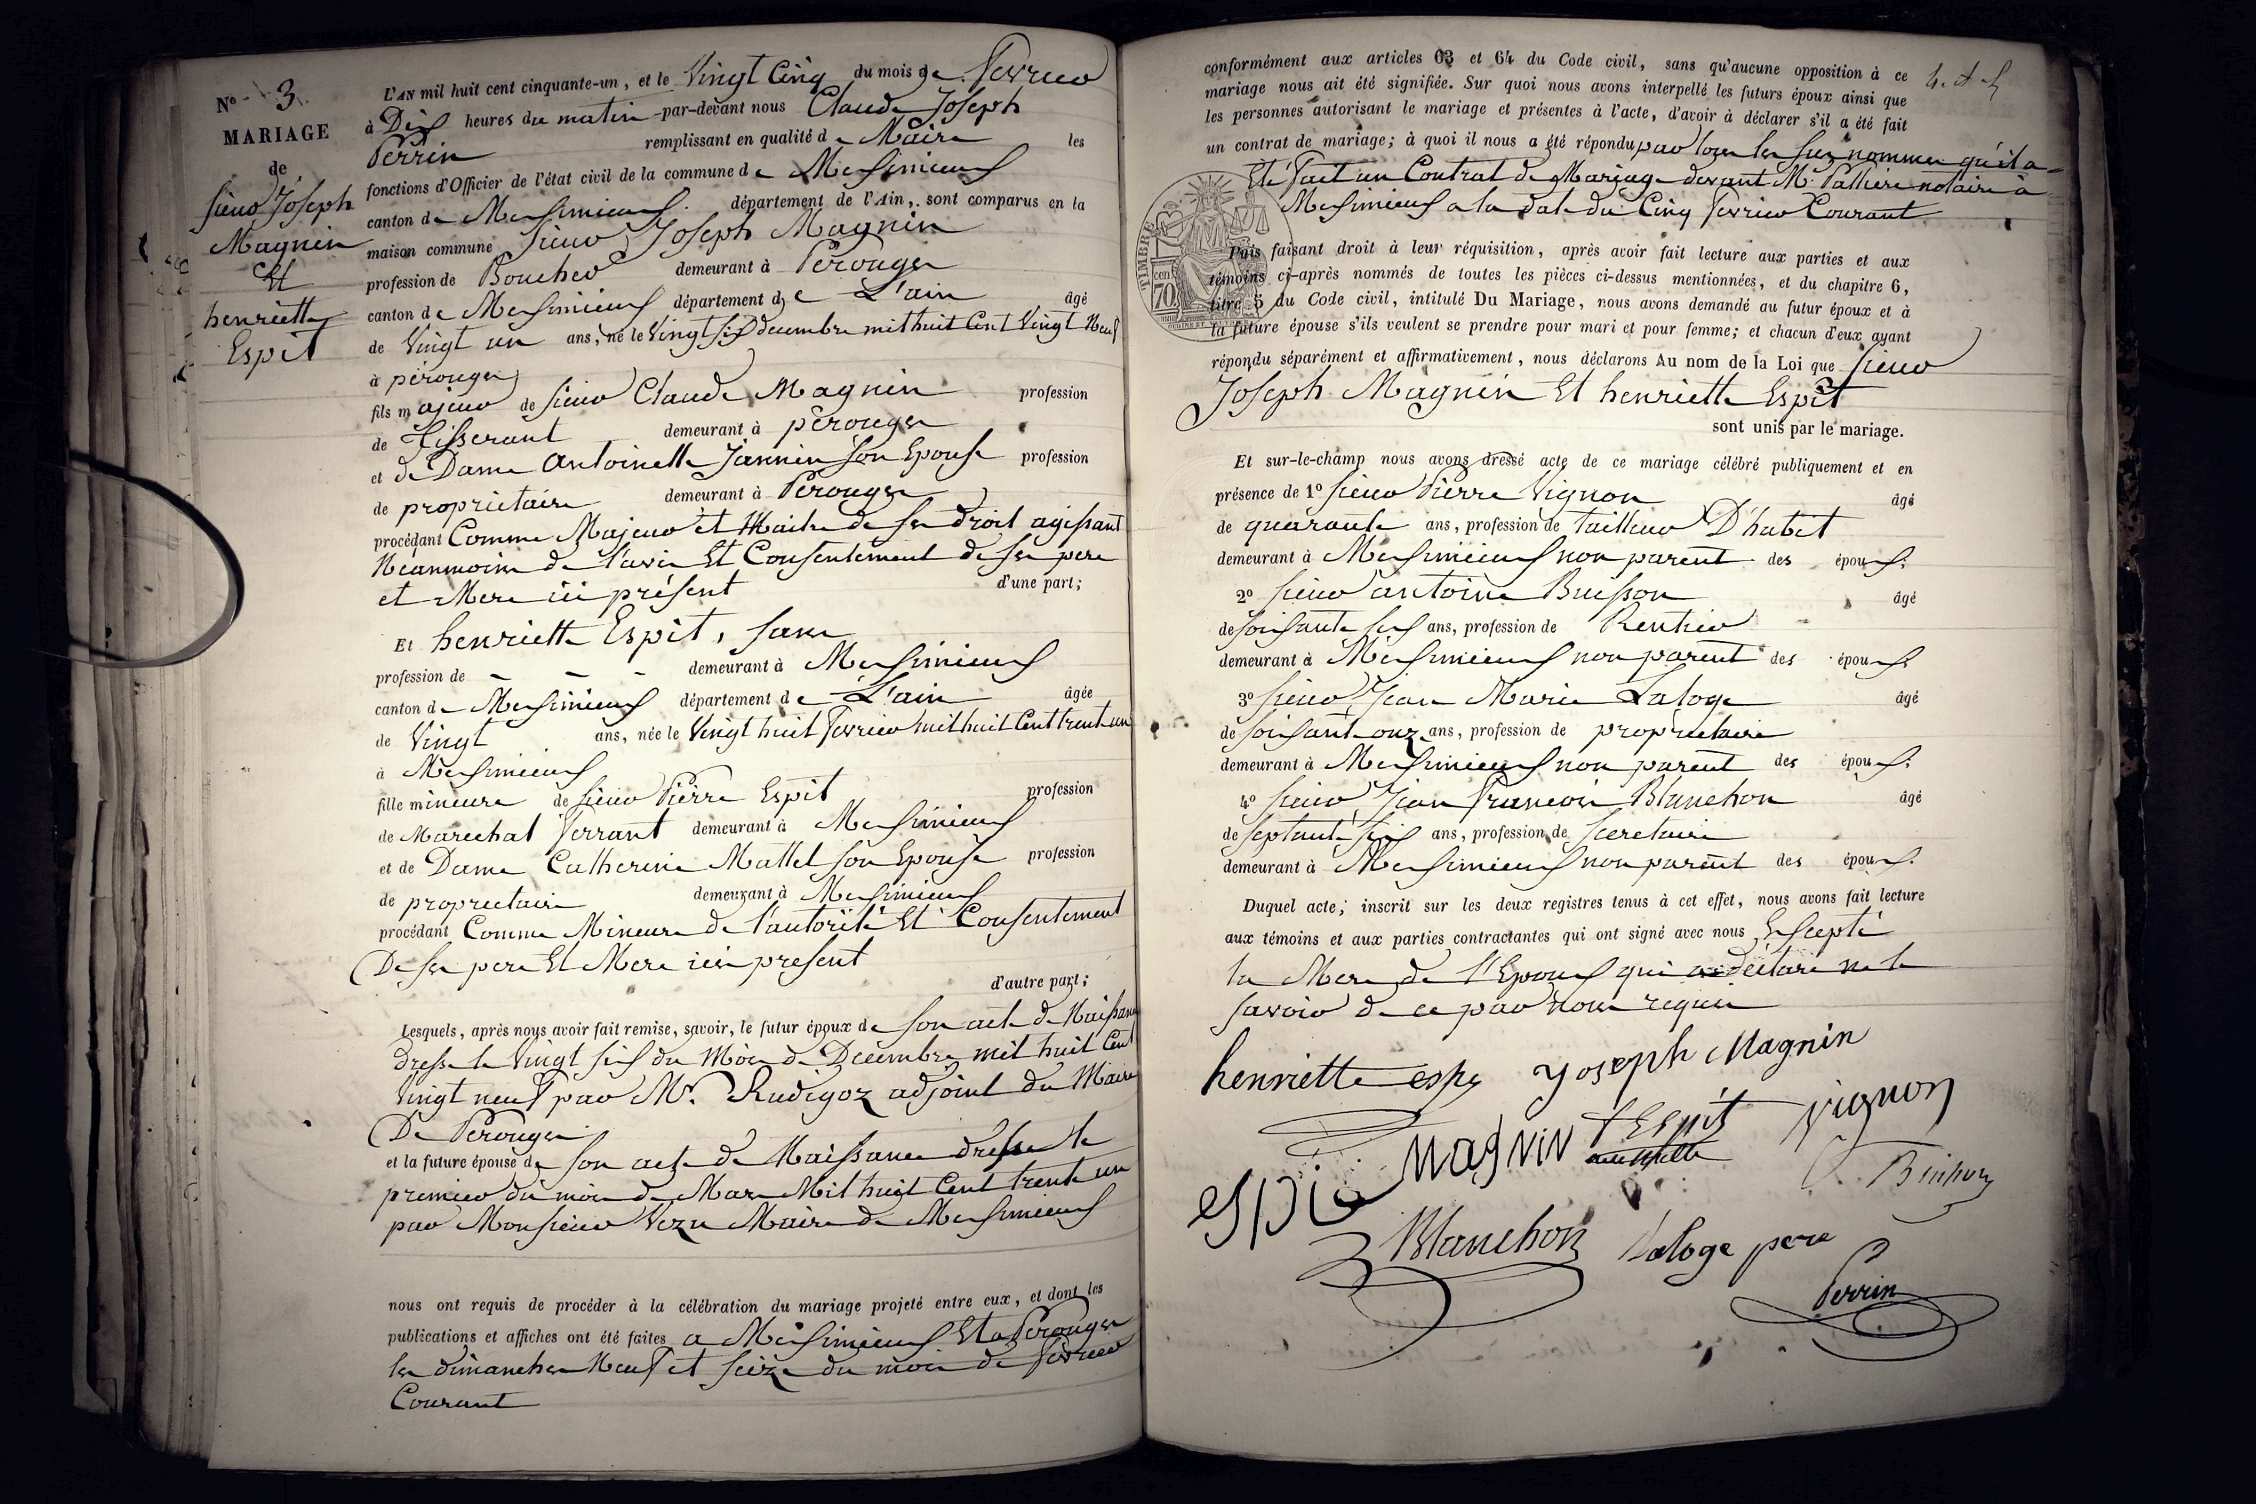 N° 3.
MARIAGE
de
sieur Joseph
Magnin
Et
henriette
Espit
L'AN mil huit cent cinquante-un, et le Vingt Cinq du mois de Fevrier
à Dix heures du matin par-devant nous Claude Joseph
Perrin remplissant en qualité de Maire les
fonctions d'Officier de l'état civil de la commune de Meximieux
canton de Meximieux. département de l'Ain, sont comparus en la
maison commune sieur Joseph Magnin
profession de Boucher demeurant à Pérouges
canton de Meximieux département de L'ain âgé
de Vingt un ans, né le Vingt six decembre mil huit Cent Vingt Neuf
à pérouges
fils majeur de sieur Claude Magnin profession
de Tisserant demeurant à pérouges
et de Dame Antoinette Jannin son Epouse profession
de propriétaire demeurant à Pérouges
procédant Comme Majeur et Maitre de ses droit agissant
Neanmoins de l'avis Et Consentement de ses pere
et Mere ici présent d'une part;
Et henriette Espit, sans
profession de - - - demeurant à Meximieux
canton de Meximieux département de L'ain âgée
de Vingt ans, née le Vingt huit Fevrier mil huit Cent trent un
à Meximieux
fille mineure de sieur Pierre Espit profession
de Marechal Ferrant demeurant à Meximieux
et de Dame Catherine Mattel son Epouse profession
de propriétaire demeurant à Meximieux
procédant Comme Mineure de l'autorité Et Consentement
De ses pere Et Mere ici present
d'autre part;
Lesquels, après nous avoir fait remise, savoir, le futur époux de son acte de Naissance
dressé le Vingt six du Mois de Decembre mil huit Cent
Vingt neuf par Mr. Rudigoz adjoint du Maire
De Pérouges
et la future épouse de son acte de Naissance dressé le
premier du mois de Mars Mil huit Cent trente un
par Monsieur Vezu Maire de Meximieux
nous ont requis de procéder à la célébration du mariage projeté entre eux, et dont les
publications et affiches ont été faites a Meximieux Et a Pérouges
les dimanches Neuf et seize du mois de Fevrier
Courant
conformément aux articles 63 et 64 du Code civil, sans qu'aucune opposition à ce
mariage nous ait été signifiée. Sur quoi nous avons interpellé les futurs époux ainsi que
les personnes autorisant le mariage et présentes à l'acte, d'avoir à déclarer s'il a été fait
un contrat de mariage; à quoi il nous a été répondu par tous les sus nommes qu'il a
Eté Fait un Contrat de Mariage devant Mr. Pallier notaire à
Meximieux a la date du Cinq Fevrier Courant
TIMBRE
cent
70
Puis faisant droit à leur réquisition, après avoir fait lecture aux parties et aux
témoins ci-après nommés de toutes les pièces ci-dessus mentionnées, et du chapitre 6,
titre 5 du Code civil, intitulé Du Mariage, nous avons demandé au futur époux et à
la future épouse s'ils veulent se prendre pour mari et pour femme; et chacun d'eux ayant
répondu séparément et affirmativement, nous déclarons Au nom de la Loi que sieur
Joseph Magnin Et henriette Espit
sont unis par le mariage.
Et sur-le-champ nous avons dressé acte de ce mariage célébré publiquement et en
présence de 1° sieur Pierre Vignon âgé
de quarante ans, profession de Tailleur D'habit
demeurant à Meximieux non parent des époux.
2° sieur antoine Buisson âgé
de soixante six ans, profession de Rentier
demeurant à Meximieux non parent des époux.
3° sieur Jean Marie Laloge âgé
de soixant onze ans, profession de propriétaire
demeurant à Meximieux non parent des époux.
4° sieur Jean François Blanchon âgé
de septante six ans, profession de Secretaire
demeurant à Meximieux non parent des époux.
Duquel acte, inscrit sur les deux registres tenus à cet effet, nous avons fait lecture
aux témoins et aux parties contractantes qui ont signé avec nous Excepté
la Mere de l'Epoux qui a déclaré ne le
savoir de ce par nous requis
henriette espy Joseph Magnin
Magnin Espit Vignon
Buisson
espit
Blanchon Laloge pere
Perrin